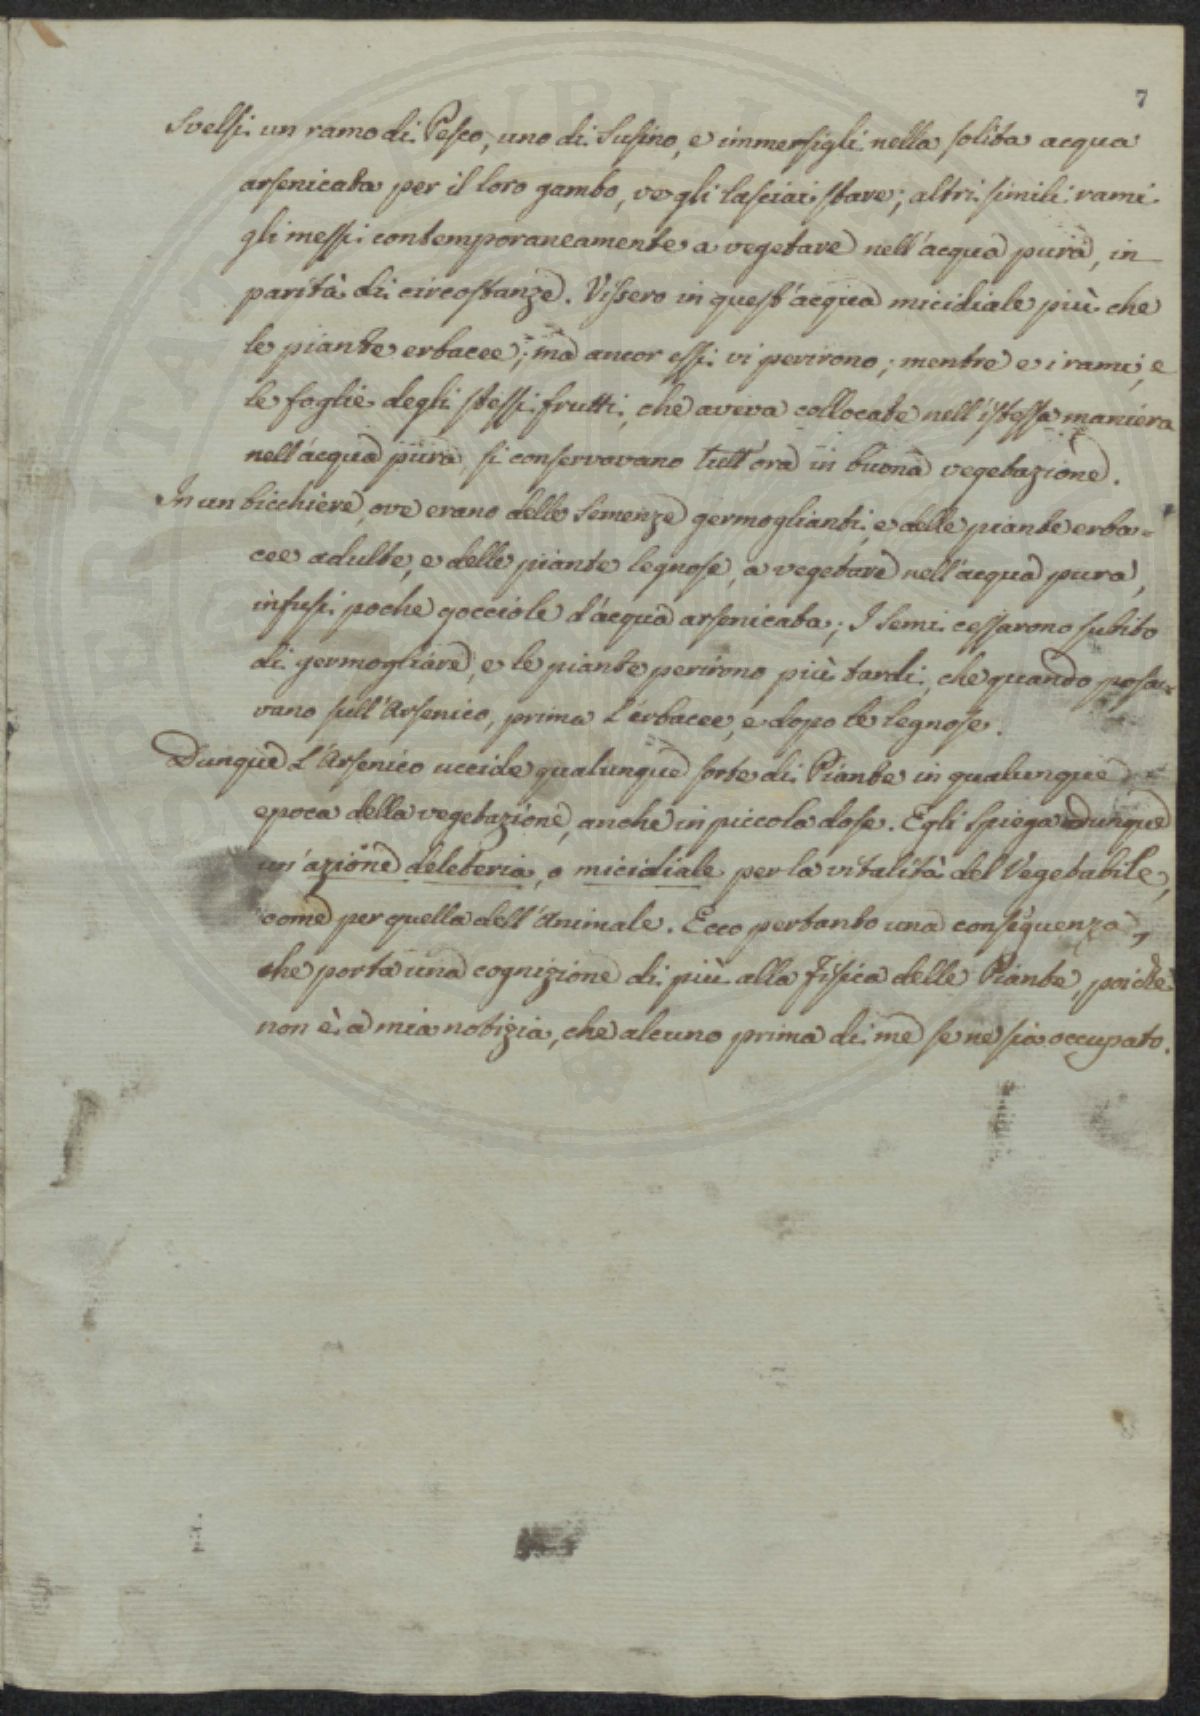 7
Svelsi un ramo di Pesco, uno di Susino, e immersigli nella solita acqua
arsenicata per il loro gambo, ve gli lasciai stare; altri simili rami
gli messi contemporaneamente a vegetare nell'acqua pura, in
parità di circostanze. Vissero in quest'acqua micidiale più che
le piante erbacee; ma ancor essi vi perirono; mentre e i rami, e
le foglie degli stessi frutti, che aveva collocate nell'istessa maniera
nell'acqua pura, si conservavano tutt'ora in buona vegetazione.
In un bicchiere, ove erano delle Semenze germoglianti, e delle piante erba=
cee adulte, e delle piante legnose, a vegetare nell'acqua pura,
infusi poche gocciole d'acqua arsenicata; I Semi cessarono subito
di germogliare, e le piante perirono più tardi, che quando posa=
vano sull'Arsenico, prima l'erbacee, e dopo le legnose.
Dunque l'Arsenico uccide qualunque sorte di Piante in qualunque
epoca della vegetazione, anche in piccola dose. Egli spiega dunque
un'azione deleteria, o micidiale per la vitalità del Vegetabile,
come per quella dell'Animale. Ecco pertanto una conseguenza,
che porta una cognizione di più alla Fisica delle Piante, poichè
non è a mia notizia, che alcuno prima di me se ne sia occupato.